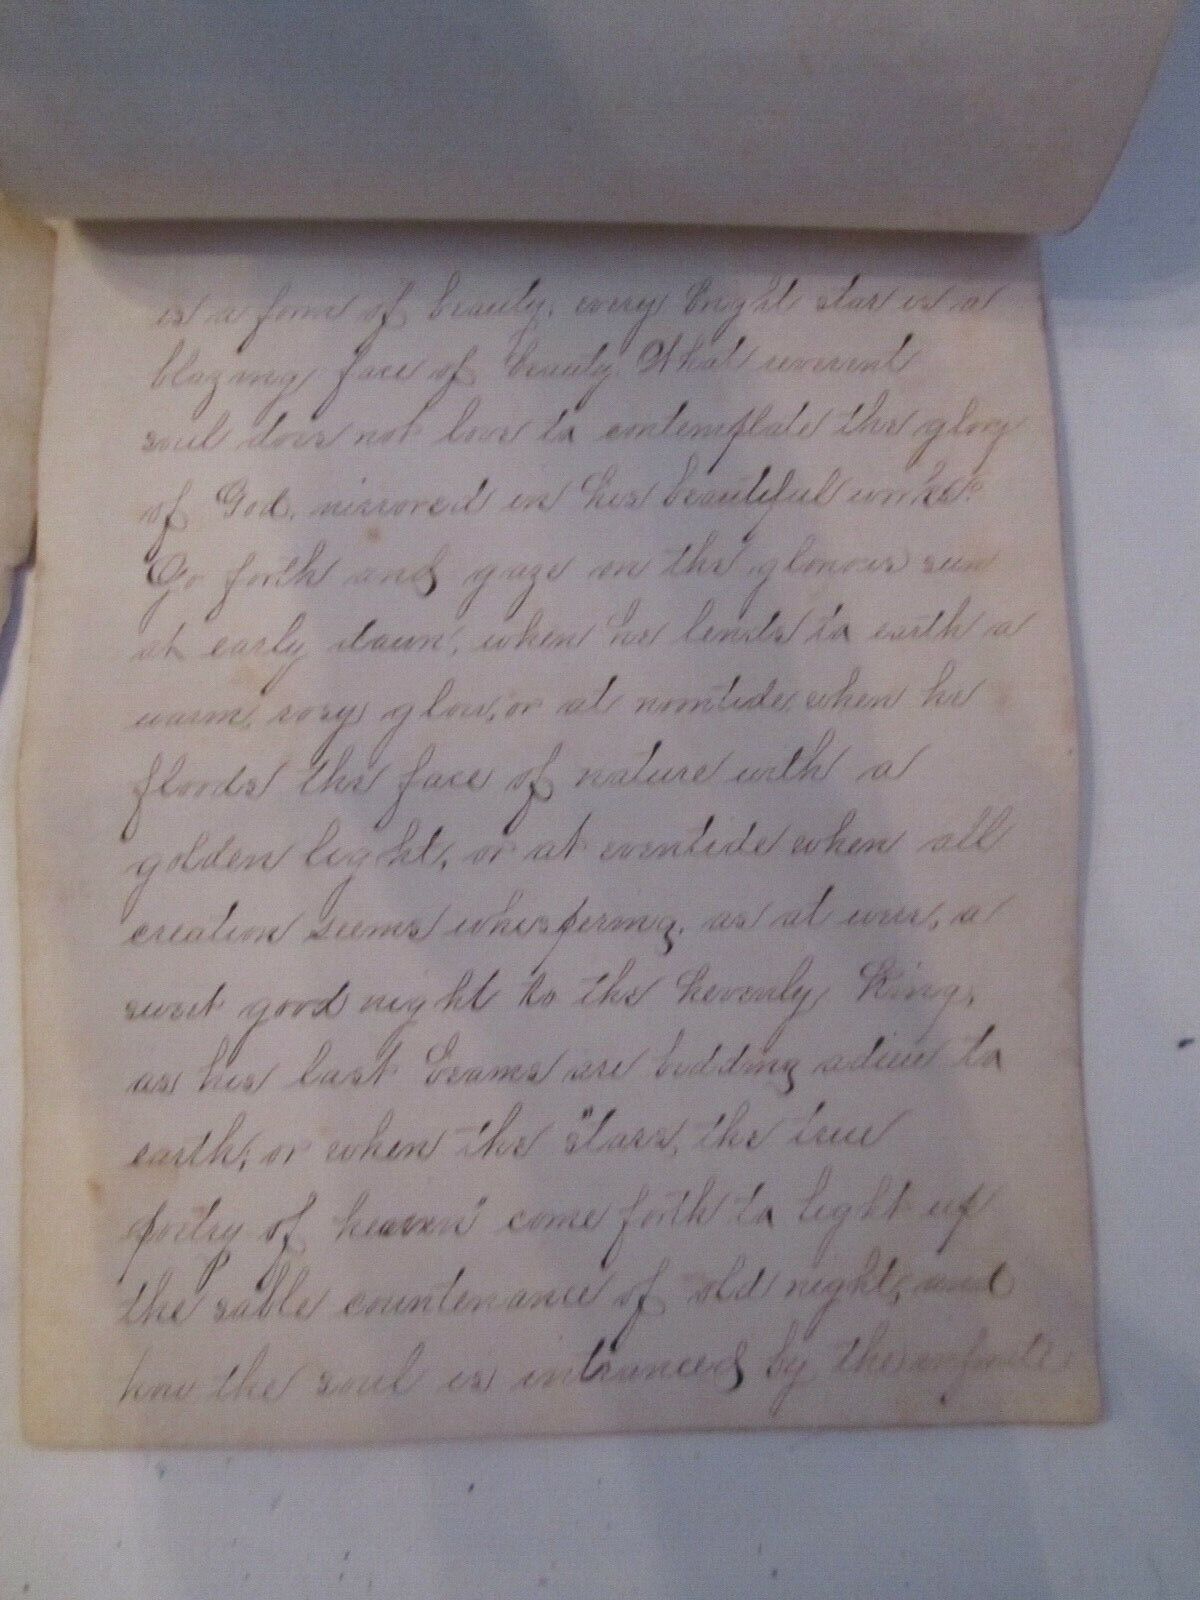 is a form of beauty, every bright star is a
blazing face of beauty. What reverent
soul does not love to contemplate the glory
of God, mirrored in his beautiful works?
Go forth and gaze on the glorious sun
at early dawn, when he lends to earth a
warm, rosy glow, or at noontide, when he
floods the face of nature with a
golden light, or at eventide when all
creation seems whispering, as it were, a
sweet good night to the hevenly King,
as his last beams are bidding adieu to
earth, or when the "stars, the true
poetry of heaven" come forth to light up
the sable countenance of old night, and
how the soul is intranced by the infinite